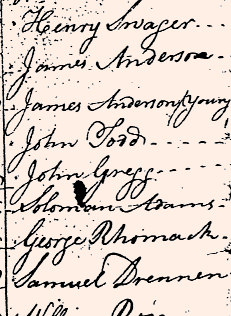 Henry Swager
James Anderson
James Anderson (Young
John Todd
John Gregg
Soloman Adams
George Rhomack
Samuel Drennen